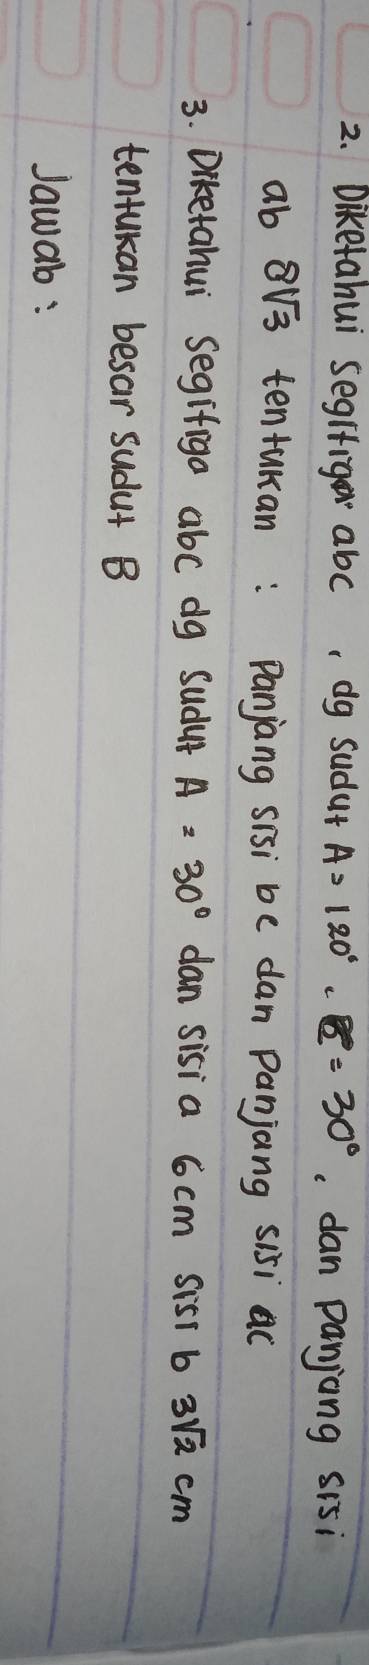 2. Diketahui segitiga abc, dg sudut A = 120°, = 30°, dan panjang sisi
ab 8√3 tentukan : Panjang sisi bc dan panjang sisi ac
3. Diketahui segitiga abc dg sudut A = 30° dan sisi a 6 cm sisi b 3√2 cm
tentukan besar sudut B
Jawab :